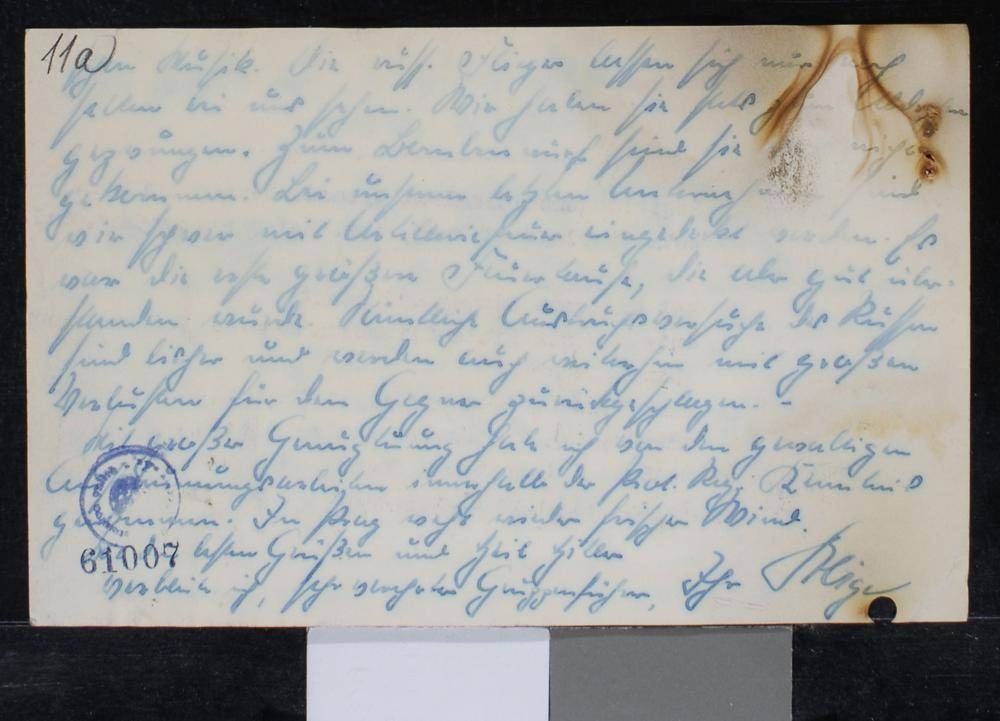 11a
Musik. Die russ. Flieger lassen sich nur noch
selten bei uns sehen. Wir haben sie stets zum Abdrehen
gezwungen. Zum Bombenwurf sind sie nicht
gekommen. Bei unserem letzten sind
wir schwer mit Artilleriefeuer eingedeckt worden. Es
war die erste größere Feuertaufe, die aber gut über-
standen wurde. Sämtliche Ausbruchsversuche des Russen
sind bisher und werden auch weiterhin mit großen
Verlusten für den Gegner zurückgeschlagen. -
Mit großer Genugtuung habe ich von den gewaltigen
innerhalb der Prot. Reg. Kenntnis
genommen. In Prag weht wieder frischer Wind.
besten Grüßen und Heil Hitler
verbleibe ich, sehr verehrter Gruppenführer, Ihr
61007